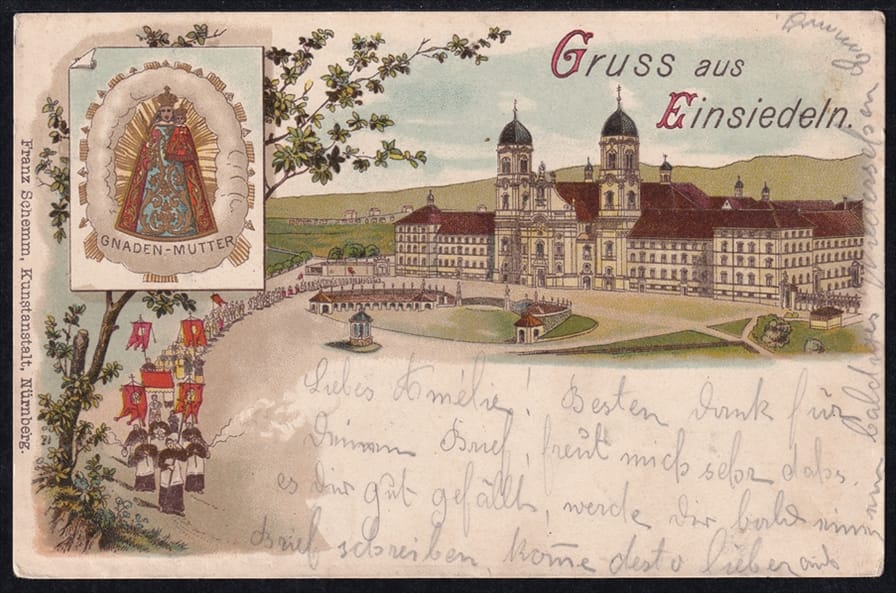 Gruss aus
Einsiedeln.
GNADEN-MUTTER
Franz Schemm, Kunstanstalt, Nürnberg.
Liebes Amélie! Besten Dank für
Deinen Brief, freut mich sehr dahs
es dir gut gefällt, werde dir bald einen
Brief schreiben, kom̅e desto lieber
auf baldiges Wiedersehen